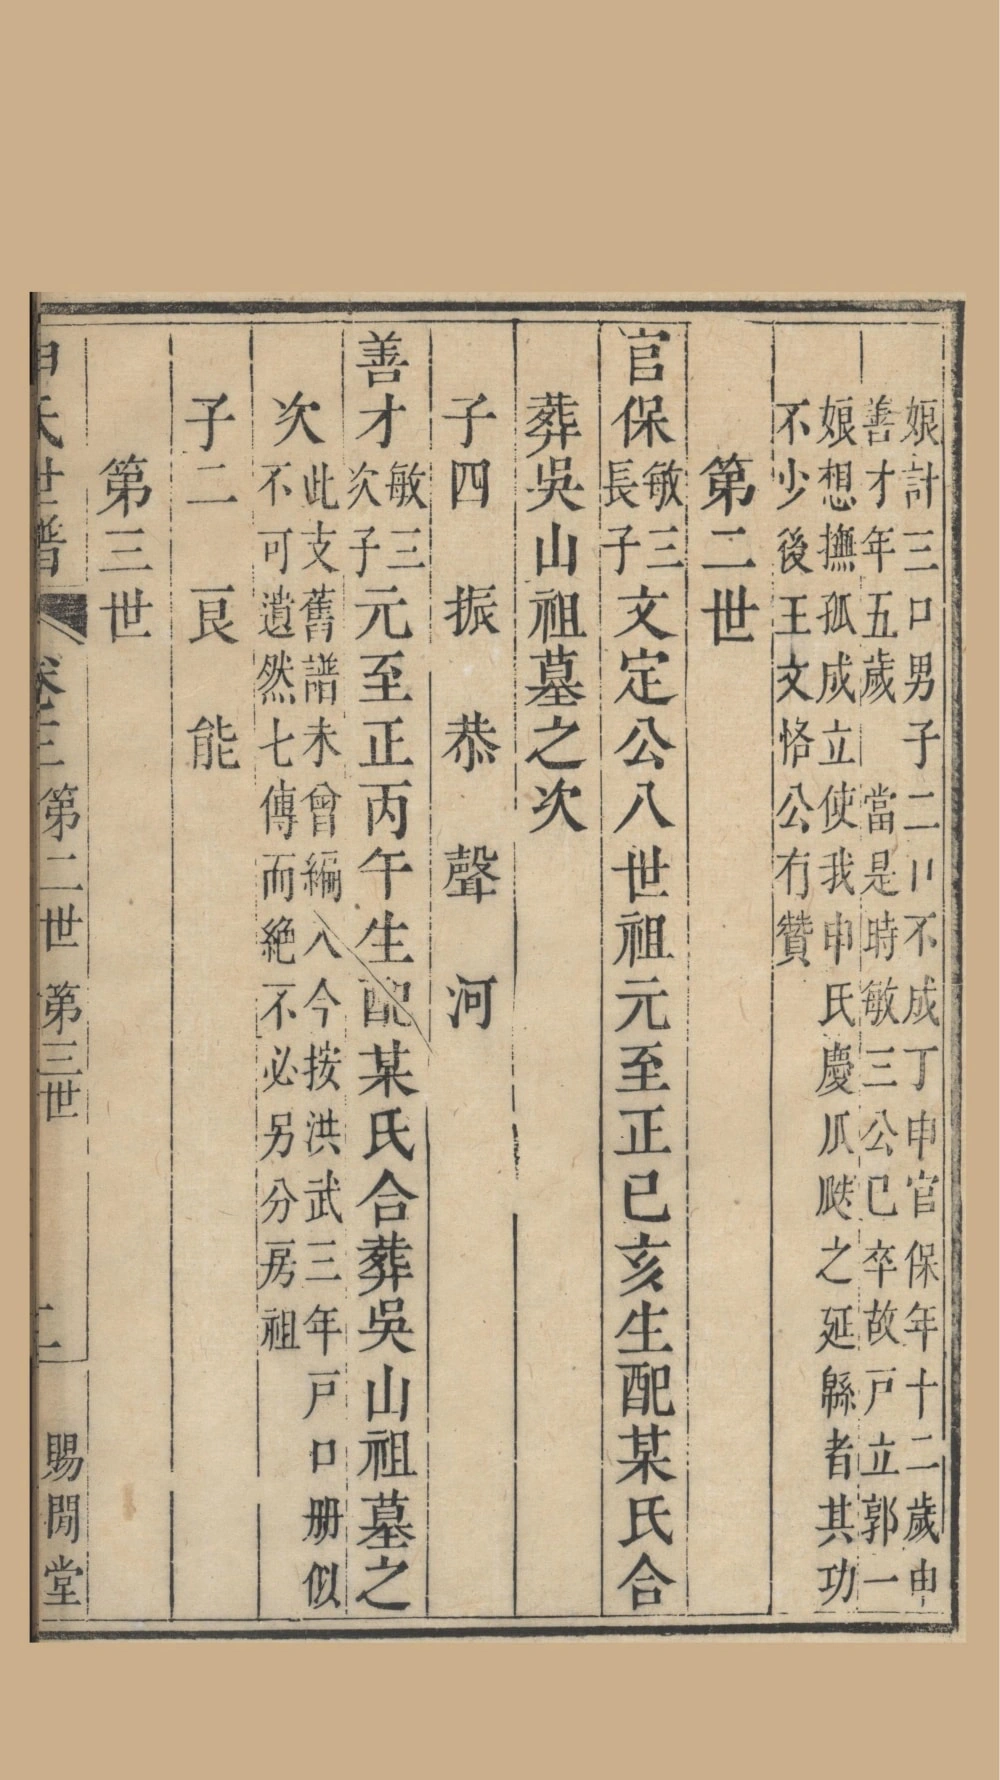 娘計三口男子二口不成丁申官保年十二歲申
善才年五歲　當是時敏三公已卒故戶立郭一
娘想撫孤成立使我申氏慶瓜瓞之延緜者其功
不少後王文恪公有贊
第二世
官保敏三長子文定公八世祖元至正己亥生配某氏合
葬吳山祖墓之次
子四　振　恭　聲　河
善才敏三次子元至正丙午生配某氏合葬吳山祖墓之
次此支舊譜未曾編入今按洪武三年戶口册似
不可遺然七傳而絶不必另分房祖
子二　艮　能
第三世
申氏世譜　卷三　第二世　第三世　二　賜閒堂